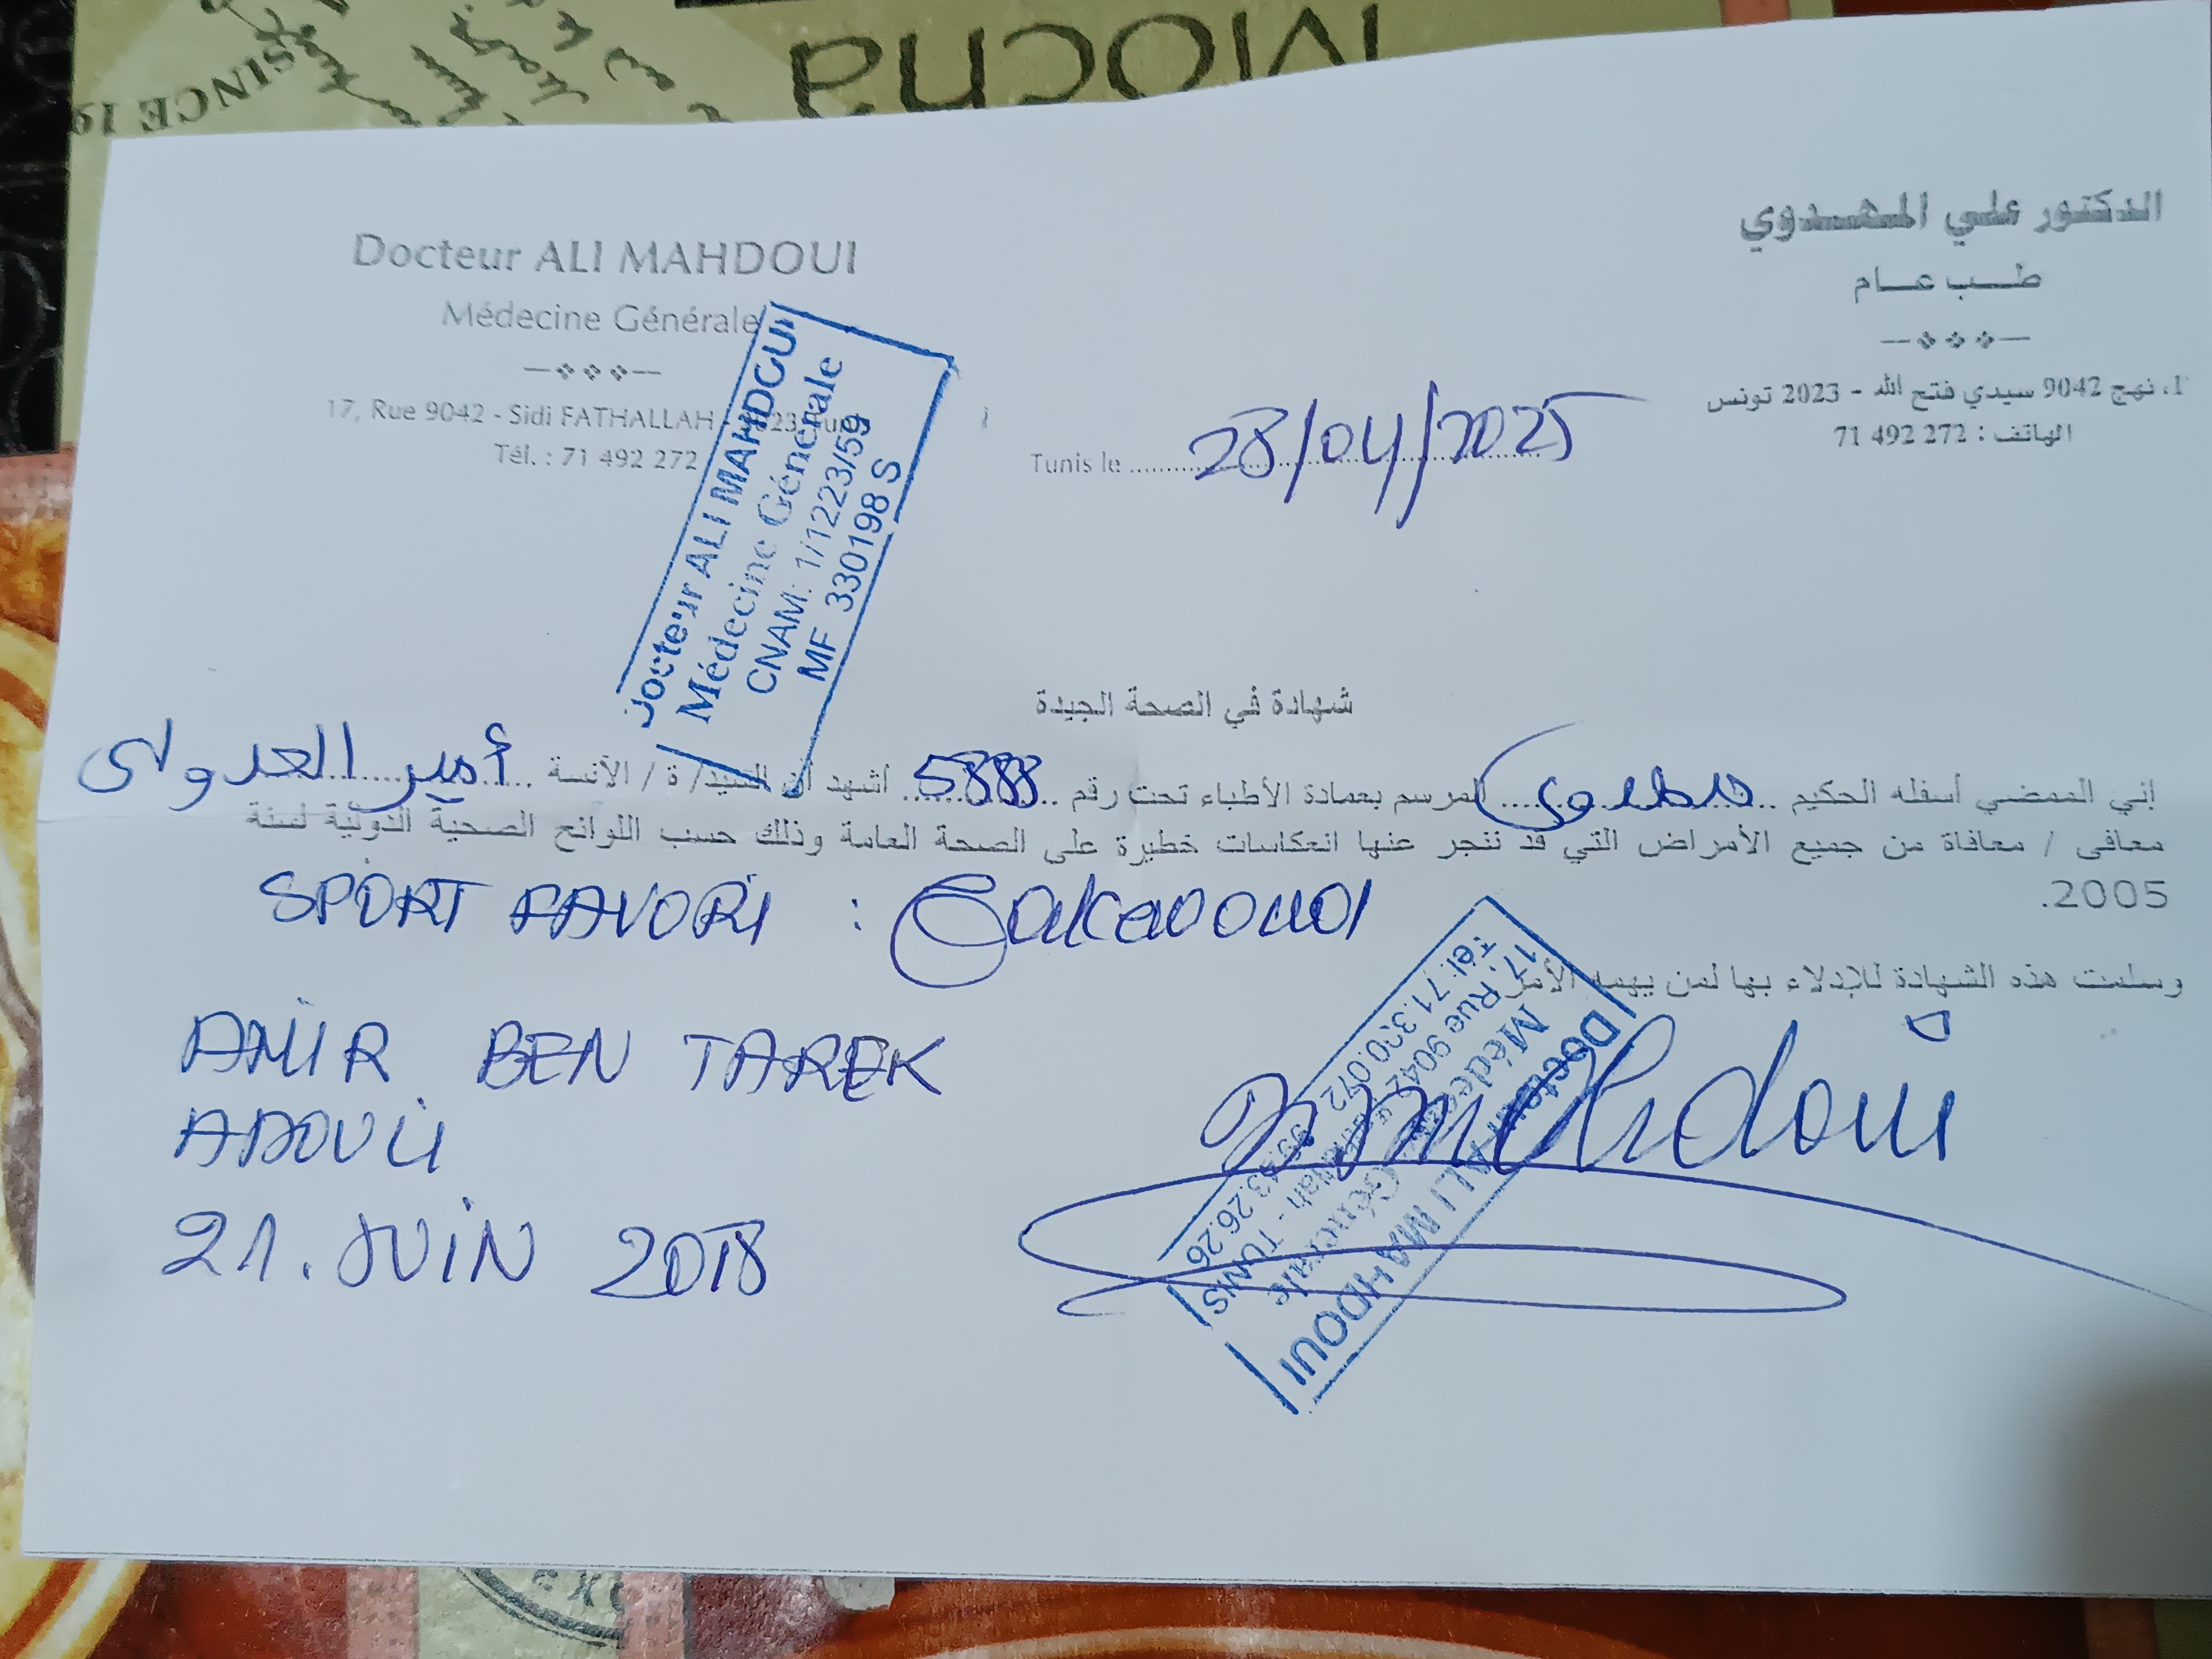 Mocha
SINCE 19
Docteur ALI MAHDOUI
Médecine Générale
17, Rue 9042 - Sidi FATHALLAH - 2023
Tél. : 71 492 272
الدكتور علي المهدوي
طب عام
نهج 9042 سيدي فتح الله - 2023 تونس
الهاتف : 272 492 71
Tunis le 28/04/2025
Docteur ALI MAHDOUI
Médecine Générale
CNAM: 1/1223/59
MF 330198 S
شهادة في الصحة الجيدة
إني الممضي أسفله الحكيم المرسم بعمادة الأطباء تحت رقم 5888 أشهد أن السيد/ ة / الآنسة أمير العدولي
معافى / معافاة من جميع الأمراض التي قد تنجر عنها انعكاسات خطيرة على الصحة العامة وذلك حسب اللوائح الصحية الدولية لسنة
2005.
SPORT FAVORI :
وسلمت هذه الشهادة للإدلاء بها لمن يهمه الأمر
AMIR BEN TAREK
ADOULI
21. JUIN 2018
Dr Mahdoui
Docteur ALI MAHDOUI
Médecine Générale
17, Rue 9042 - TUNIS
Tél: 71.320.072